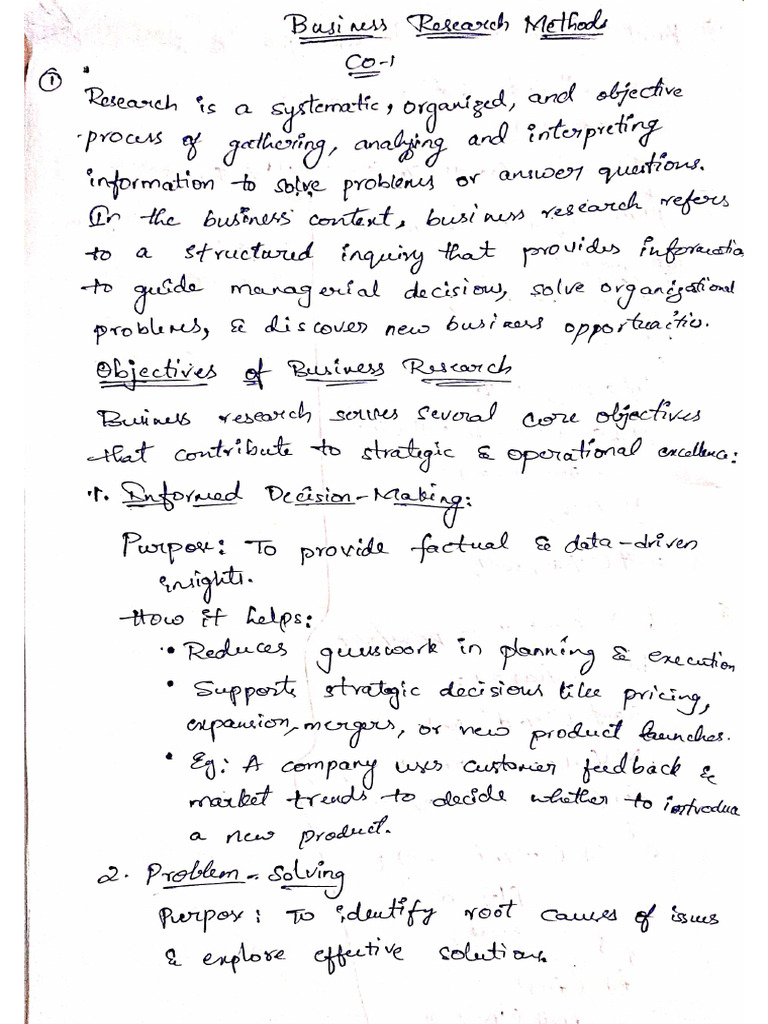 Business Research Methods
CO-1
① Research is a systematic, organized, and objective
process of gathering, analyzing and interpreting
information to solve problems or answer questions.
In the business context, business research refers
to a structured inquiry that provides information
to guide managerial decisions, solve organizational
problems, & discover new business opportunities.
Objectives of Business Research
Business research serves several core objectives
that contribute to strategic & operational excellence:
1. Informed Decision-Making:
Purpose: To provide factual & data-driven
insights.
How it helps:
• Reduces guesswork in planning & execution
• Supports strategic decisions like pricing,
expansion, mergers, or new product launches.
• Eg: A company uses customer feedback &
market trends to decide whether to introduce
a new product.
2. Problem-Solving
Purpose: To identify root causes of issues
& explore effective solutions.